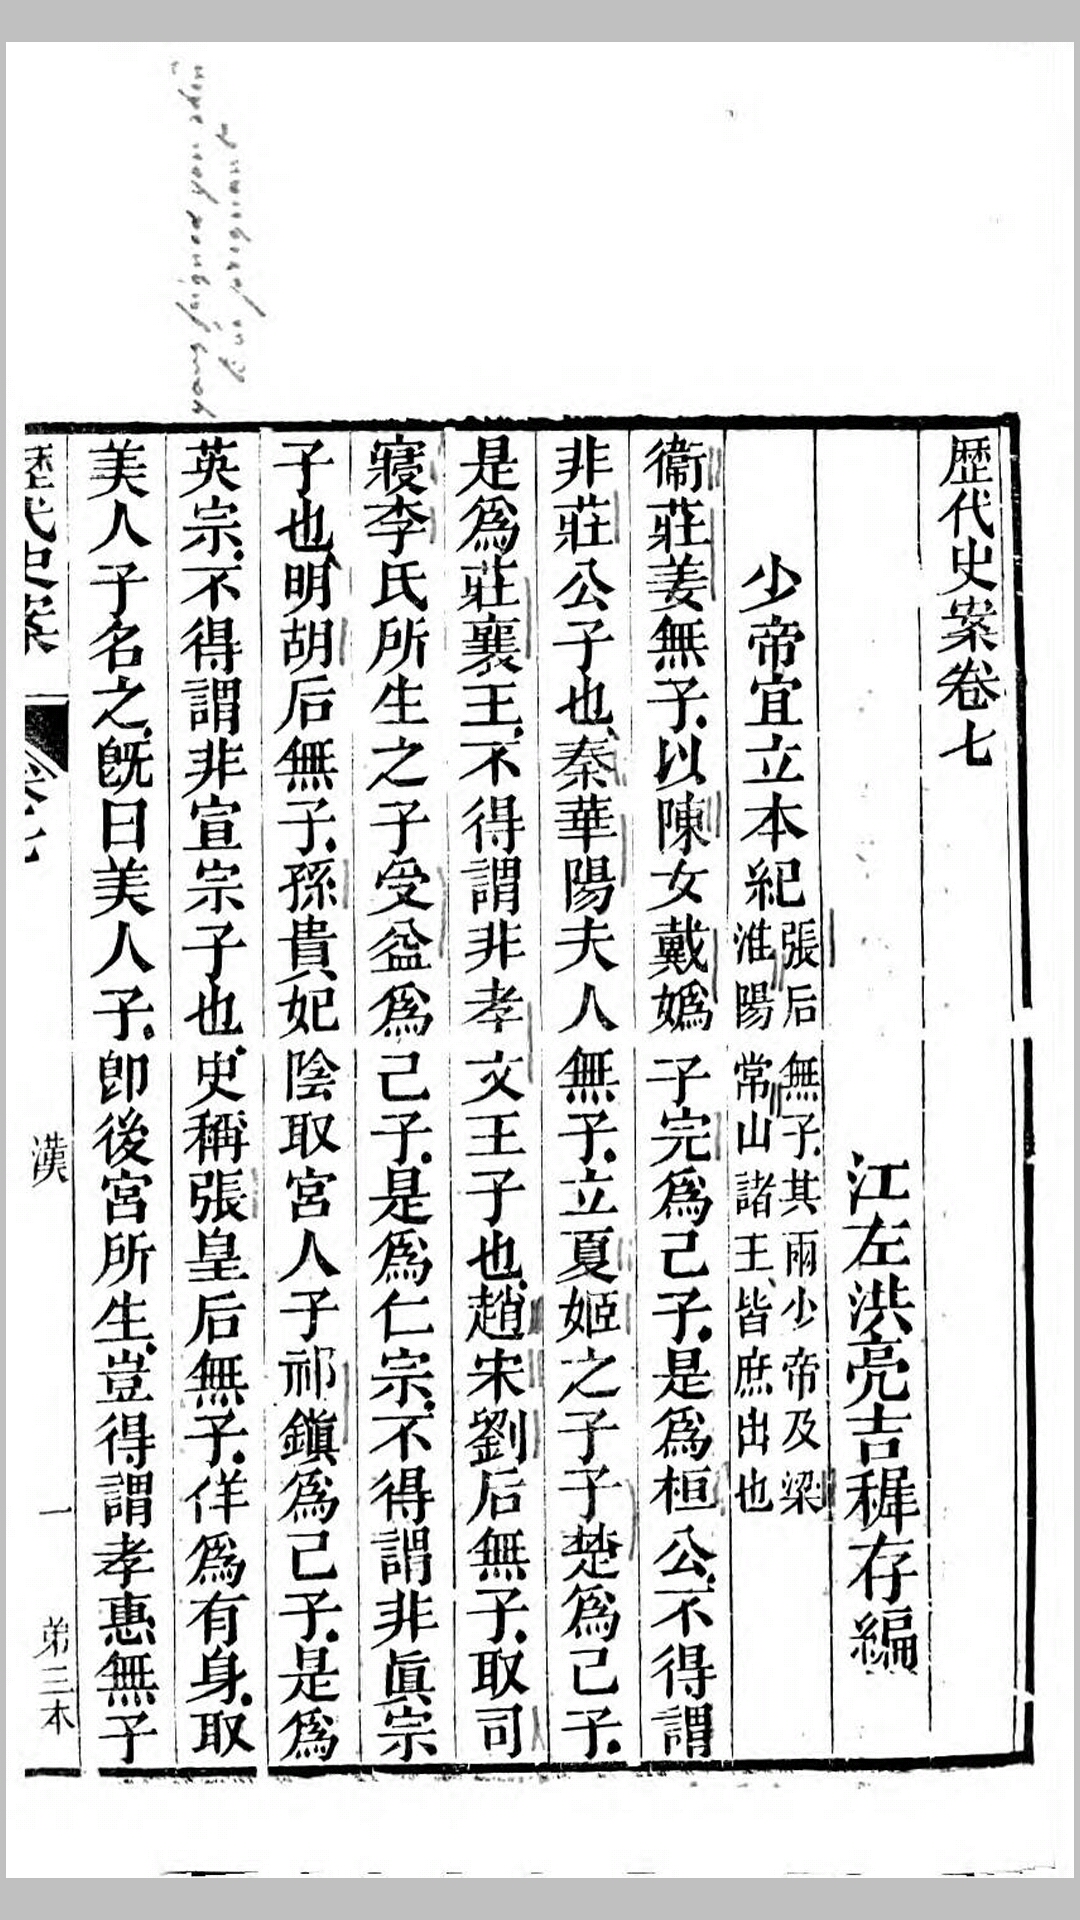 歴代史案卷七
江左洪亮吉稺存編
少帝宜立本紀
張后無子、其兩少帝及梁
淮陽常山諸王、皆庶出也
衞莊姜無子、以陳女戴嬀子完爲己子、是爲桓公、不得謂
非莊公子也、秦華陽夫人無子、立夏姬之子子楚爲己子、
是爲莊襄王、不得謂非孝文王子也、趙宋劉后無子、取司
寢李氏所生之子受益爲己子、是爲仁宗、不得謂非眞宗
子也、明胡后無子、孫貴妃陰取宮人子祁鎭爲己子、是爲
英宗、不得謂非宣宗子也、史稱張皇后無子、佯爲有身、取
美人子名之、旣曰美人子、卽後宮所生、豈得謂孝惠無子
歴代史案 卷七 漢 一 弟三本